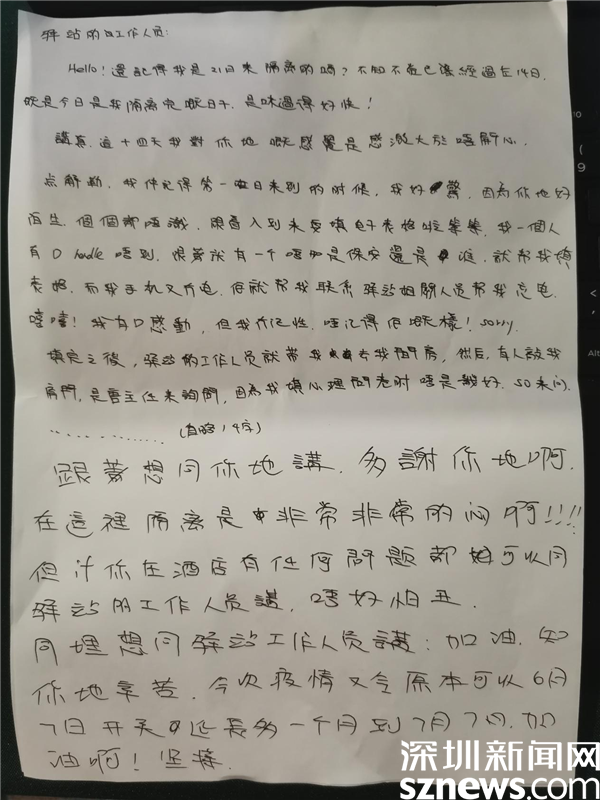 驿站的工作人员:
Hello! 還記得我是21日來隔離的嗎? 不知不覺已讓經過左14日.
既是今日是我隔離完嘅日子. 是味過得好快!
講真. 這十四天我對你地嘅感覺是感激大於唔開心.
点解勒. 我仲記得第一日来到的时候, 我好驚, 因為你地好
陌生. 個個都唔識. 跟着入到来要填电子表格啦等等, 我一個人
有D handle 唔到. 跟着就有一个唔知是保安還是誰, 就帮我填
表格. 而我手机又冇电. 佢就帮我联系驿站相關人员帮我充电.
嘩嘩! 我有D感動, 但我冇记性. 唔记得佢嘅樣! sorry.
填完之後, 驿站的工作人员就带我去我間房, 然后, 有人敲我
房門, 是曹主任来詢問, 因為我填心理問卷时唔是幾好. so来问.
............... (自略1千字)
跟着想同你地講. 多謝你地啊.
在這裡隔离是非常非常的闷啊!!!!
但你在酒店有任何問题都可以同
驿站的工作人员講. 唔好怕丑.
同埋想同驿站工作人员講: 加油. 知
你地辛苦. 今次疫情又令原本可以6月
7日开关延長多一个月到7月7日. 加
油啊! 坚持.
深圳新闻网
sznews.com
10
9
Alt